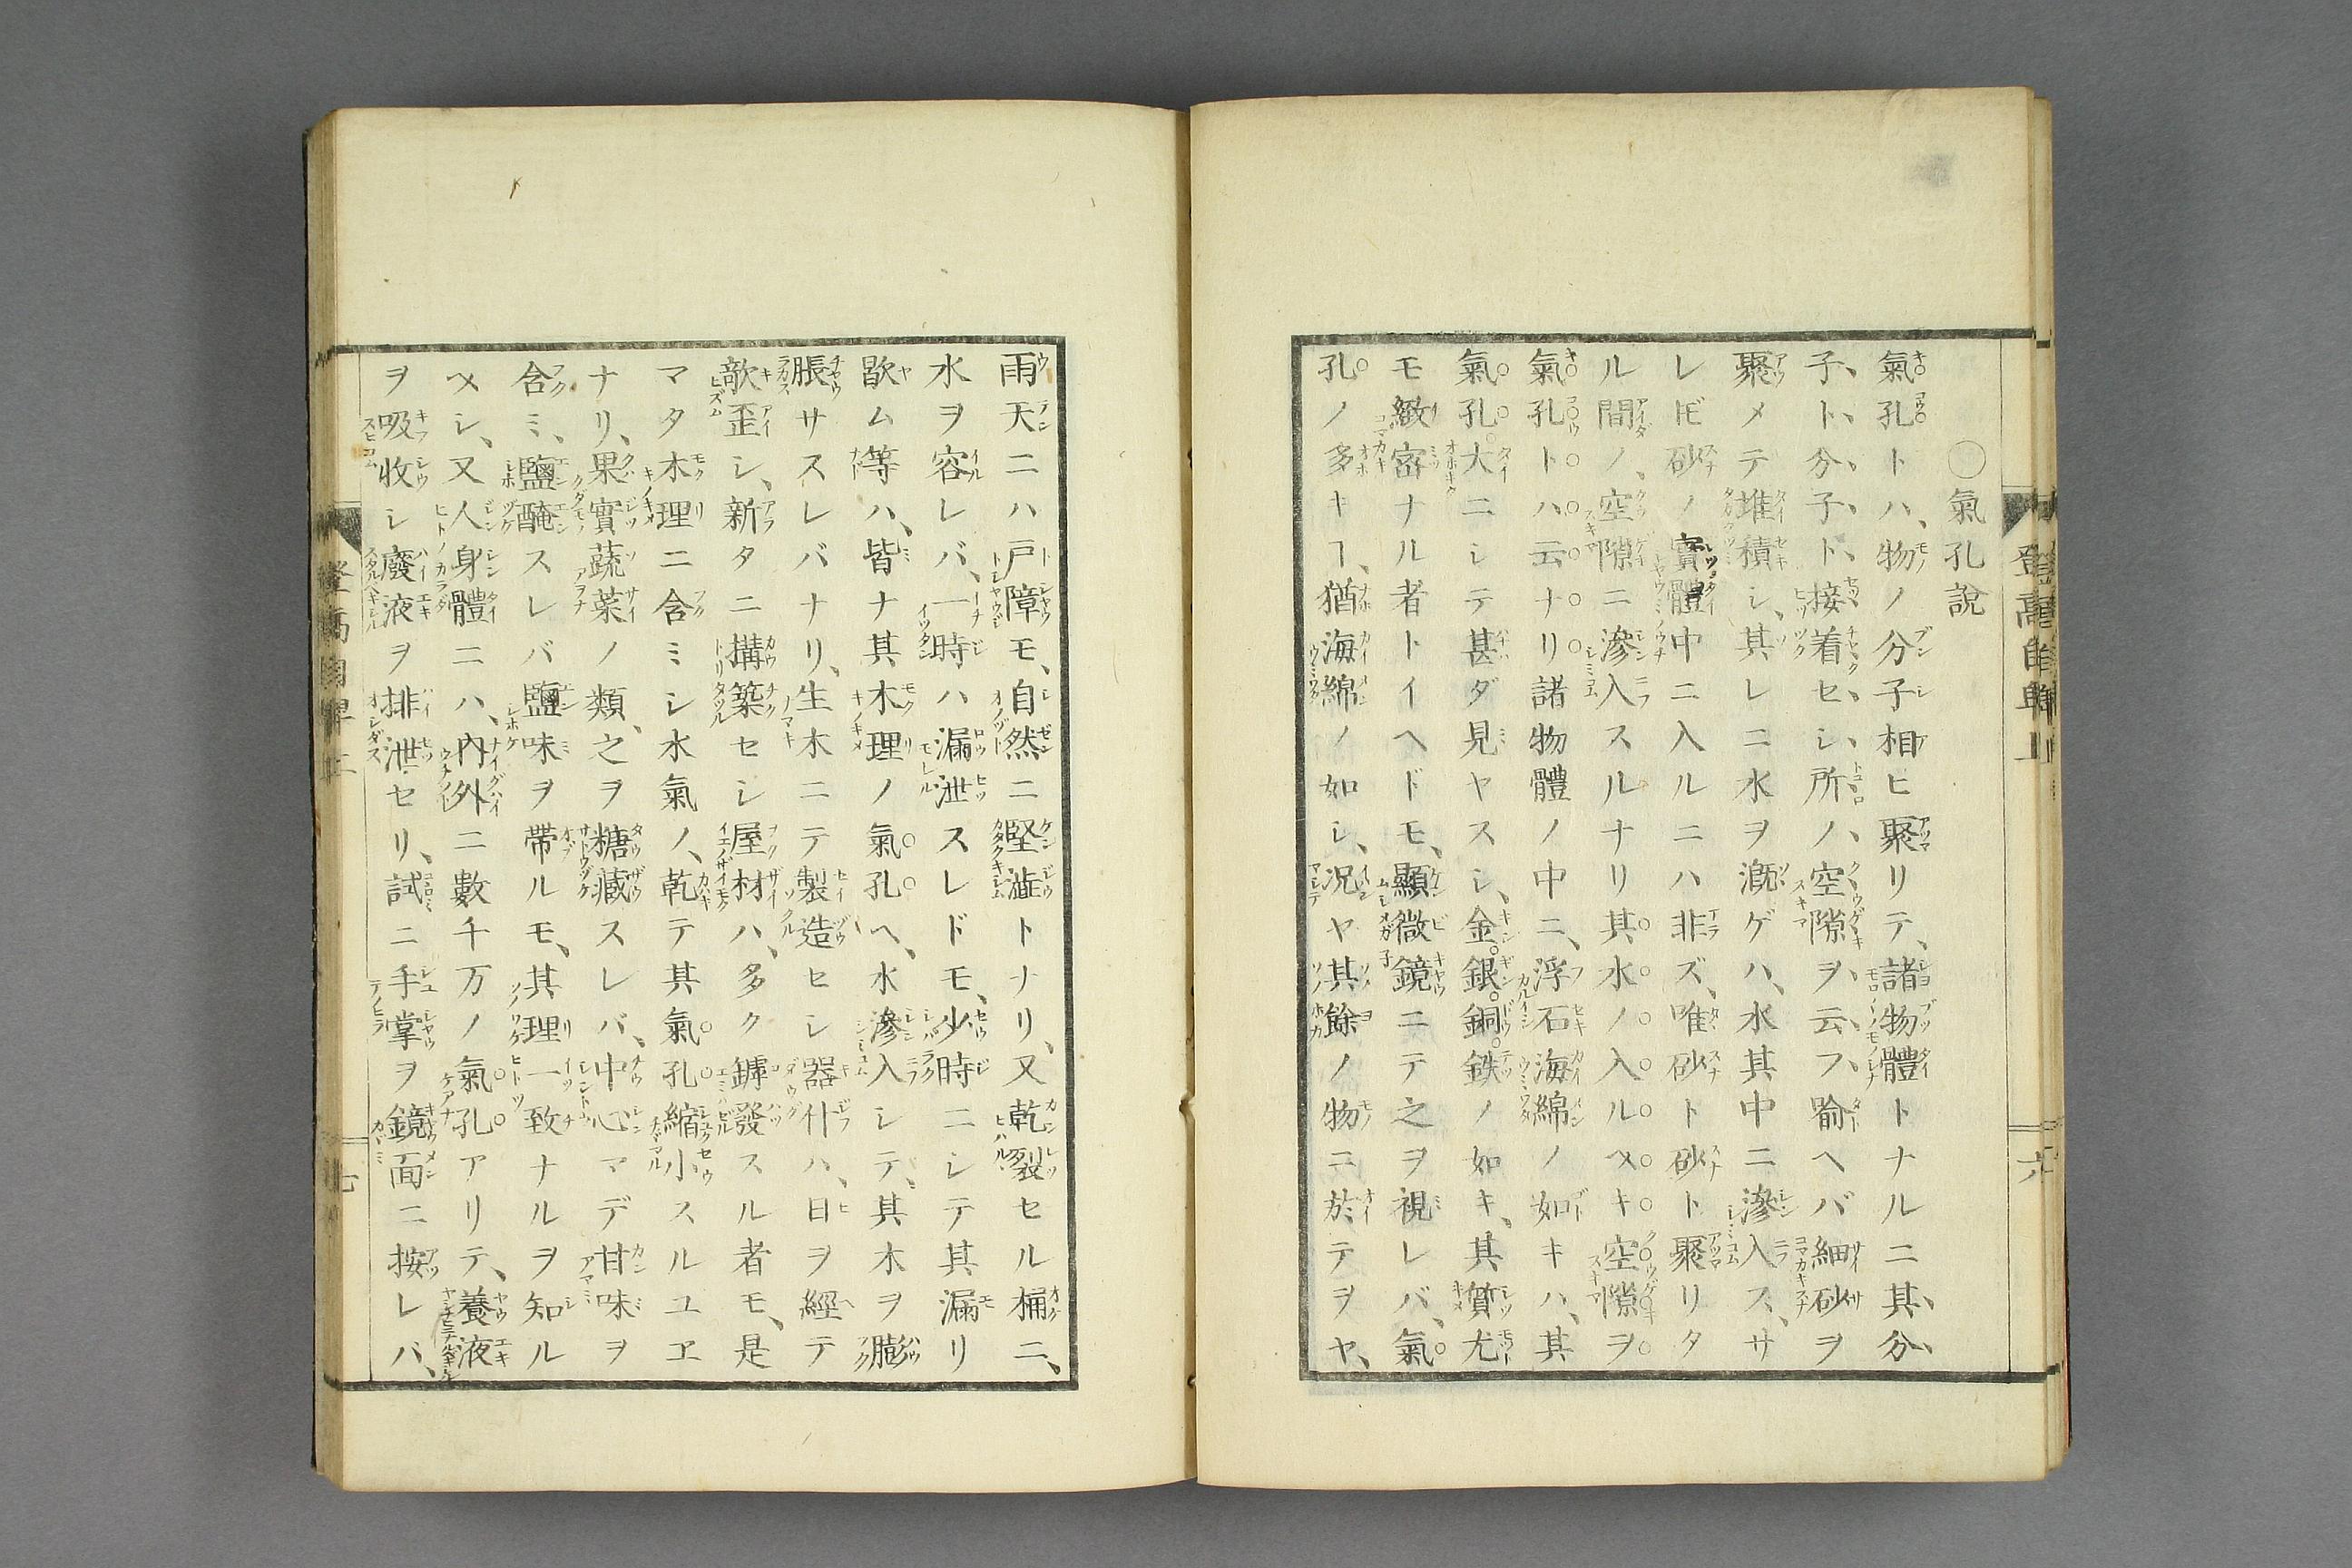 ○氣孔說
氣孔トハ、物ノ分子相ヒ聚リテ、諸物體トナルニ其、分、
子、ト、分、子、ト、接、着、セ、シ、所、ノ、空、隙、ヲ、云、フ、喻ヘバ細砂ヲ
聚メテ堆積シ、其レニ水ヲ漑ゲハ、水其中ニ滲入ス、サ
レ𪜈砂ノ實體中ニ入ルニハ非ズ、唯砂ト砂ト聚リタ
ル間ノ、空隙ニ滲入スルナリ其水ノ入ルヘキ空隙ヲ
氣孔トハ云ナリ諸物體ノ中ニ、浮石海綿ノ如キハ、其
氣孔大ニシテ甚ダ見ヤスシ、金銀銅鉄ノ如キ、其質尤
モ緻密ナル者トイヘドモ、顯微鏡ニテ之ヲ視レバ、氣
孔ノ多キヿ、猶海綿ノ如シ、况ヤ其餘ノ物ニ於テヲヤ、
登高自卑 上
六
雨天ニハ戸障モ、自然ニ堅澁トナリ、又乾裂セル桶ニ、
水ヲ容レバ、一時ハ漏泄スレドモ、少時ニシテ其漏リ
歇ム等ハ、皆ナ其木理ノ氣孔ヘ、水滲入シテ、其木ヲ膨
脹サスレバナリ、生木ニテ製造セシ器什ハ、日ヲ經テ
欹歪シ、新タニ搆築セシ屋材ハ、多ク鏬發スル者モ、是
マタ木理ニ含ミシ水氣ノ、乾テ其氣孔縮小スルユヱ
ナリ、果實蔬菜ノ類、之ヲ糖藏スレバ、中心マデ甘味ヲ
含ミ、鹽醃スレバ鹽味ヲ帶ルモ、其理一致ナルヲ知ル
ヘシ、又人身體ニハ、內外ニ數千万ノ氣孔アリテ、養液
ヲ吸收シ廢液ヲ排泄セリ、試ニ手掌ヲ鏡面ニ按レバ、
登高自卑 上
七